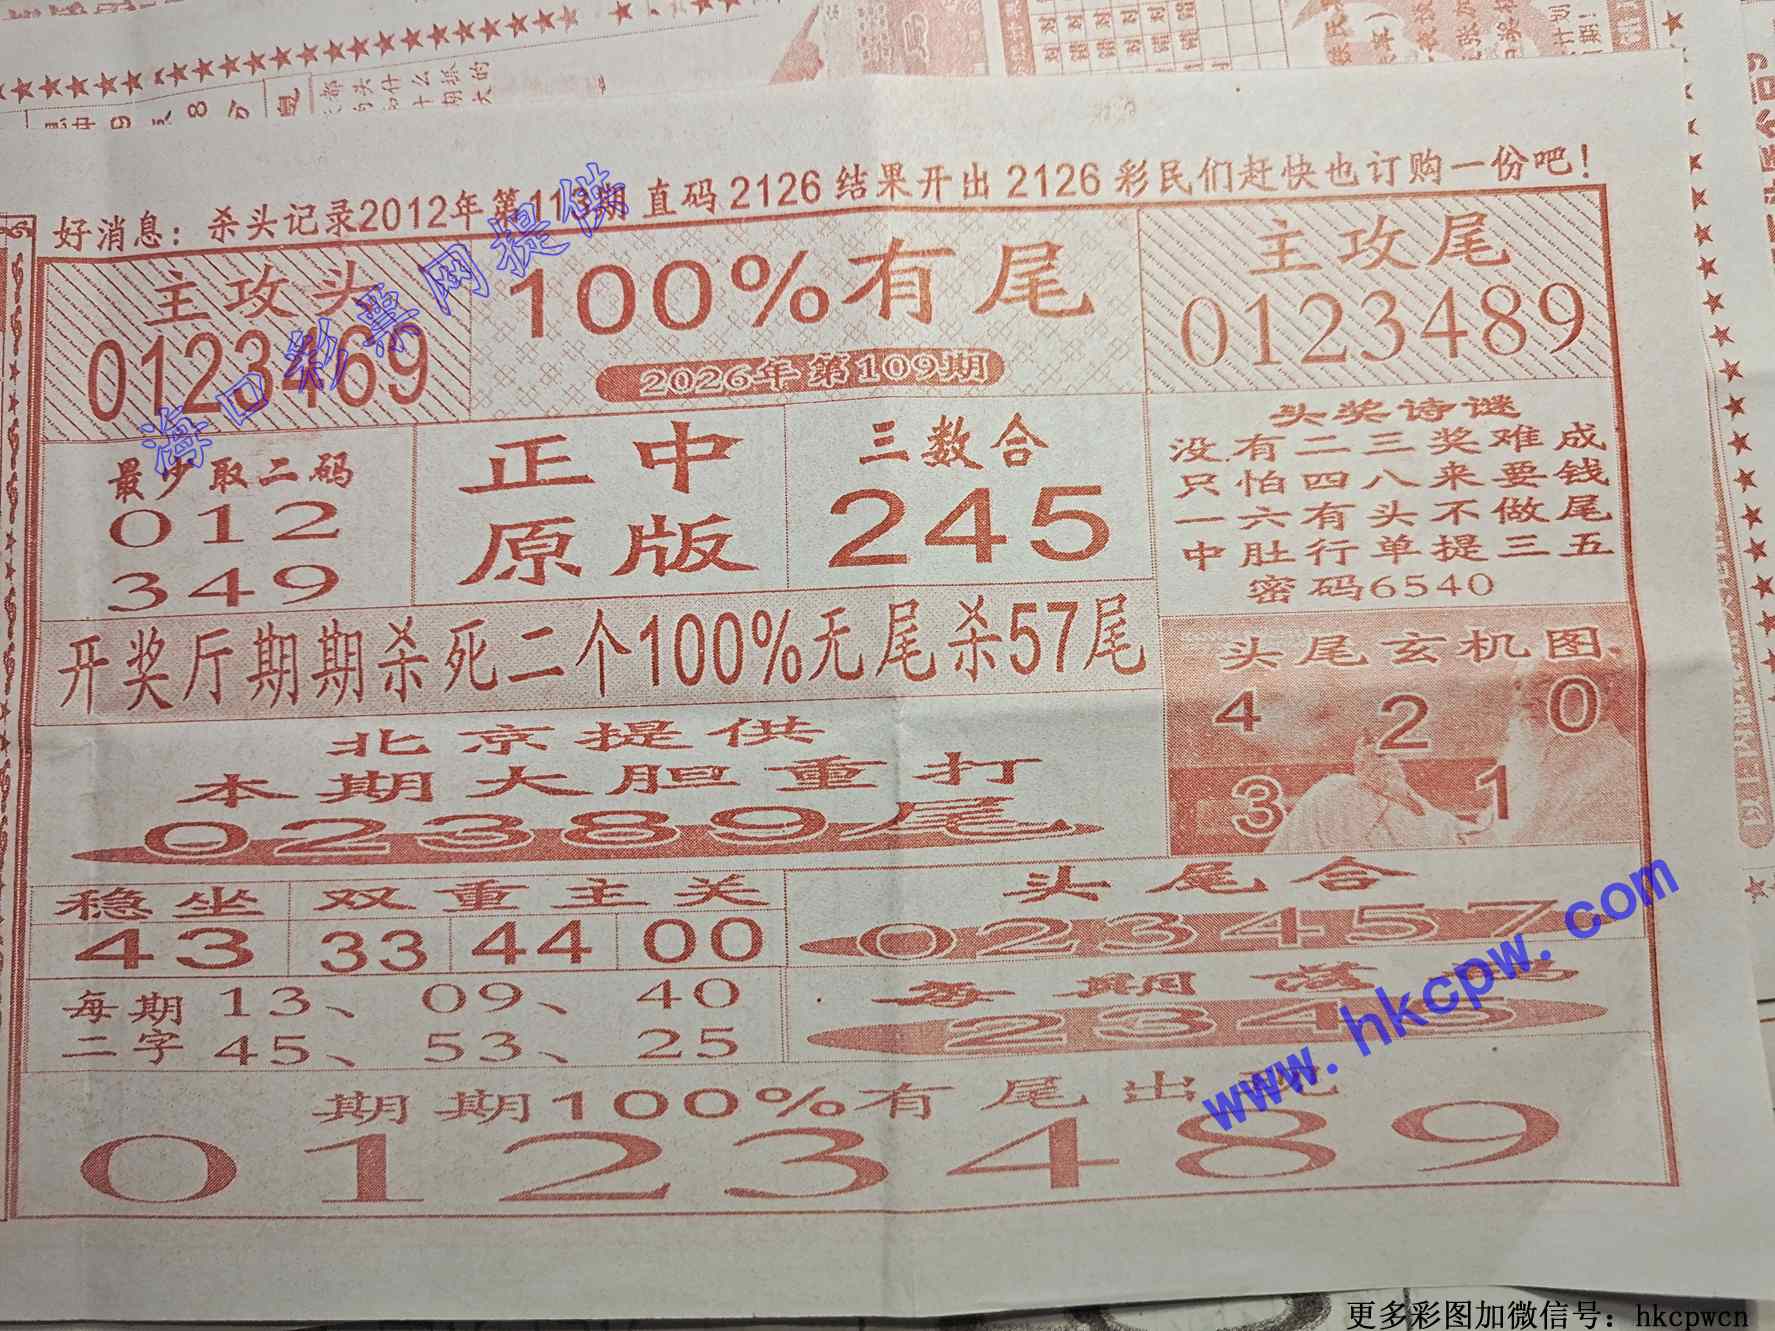 好消息：杀头记录2012年第113期 直码 2126 结果开出 2126 彩民们赶快也订购一份吧！
主攻头
0123469
100%有尾
2026年第109期
主攻尾
0123489
最少取二码
012
349
正中
原版
三数合
245
头奖诗谜
没有二三奖难成
只怕四八来要钱
一六有头不做尾
中肚行单提三五
密码6540
开奖厅期期杀死二个100%无尾杀57尾
头尾玄机图
4 2 0
3 1
北京提供
本期大胆重打
02389尾
稳坐
43
双重主关
33 44 00
头尾合
023457
每期
二字
13、09、40
45、53、25
每期
2345
期期100%有尾出
0123489
海口彩票网提供
www.hkcpw.com
更多彩图加微信号：hkcpwcn